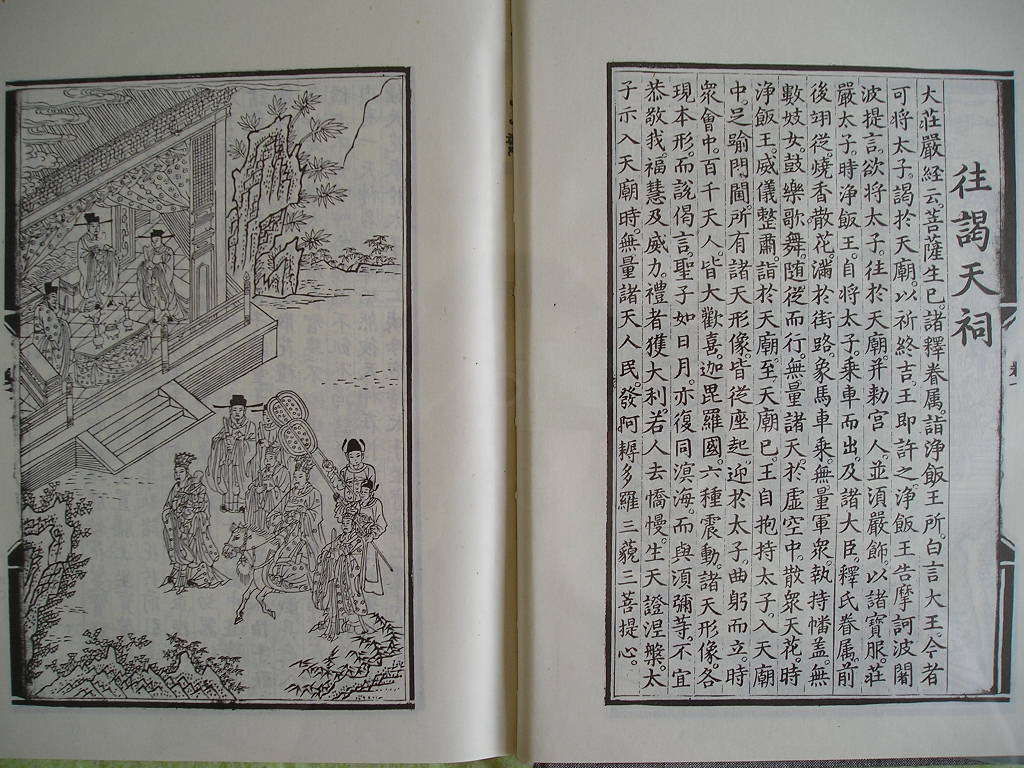 往謁天祠
大莊嚴經云。菩薩生已。諸釋眷属。詣淨飯王所。白言大王。今者
可将太子。謁於天廟。以祈終吉。王即許之。淨飯王告摩訶波闍
波提言。欲将太子。往於天廟。并勅宫人。並湏嚴飾。以諸寶服。莊
嚴太子。時淨飯王。自将太子。乗車而出。及諸大臣釋氏眷属。前
後翊從。燒香散花。滿於街路。象馬車乗。無量軍衆。執持幡盖。無
數妓女。鼓樂歌舞。随從而行。無量諸天。於虚空中。散衆天花。時
淨飯王。威儀整肅。詣於天廟。至天廟已。王自抱持太子。入天廟
中。足踰門閫。所有諸天形像。皆從座起。迎於太子。曲躬而立。時
衆會中。百千天人。皆大歡喜。迦毘羅國。六種震動。諸天形像。各
現本形。而說偈言。聖子如日月。亦復同溟海。而與湏彌等。不宜
恭敬我。福慧及威力。禮者獲大利。若人去憍慢。生天證涅槃。太
子示入天廟時。無量諸天人民。發阿耨多羅三藐三菩提心。